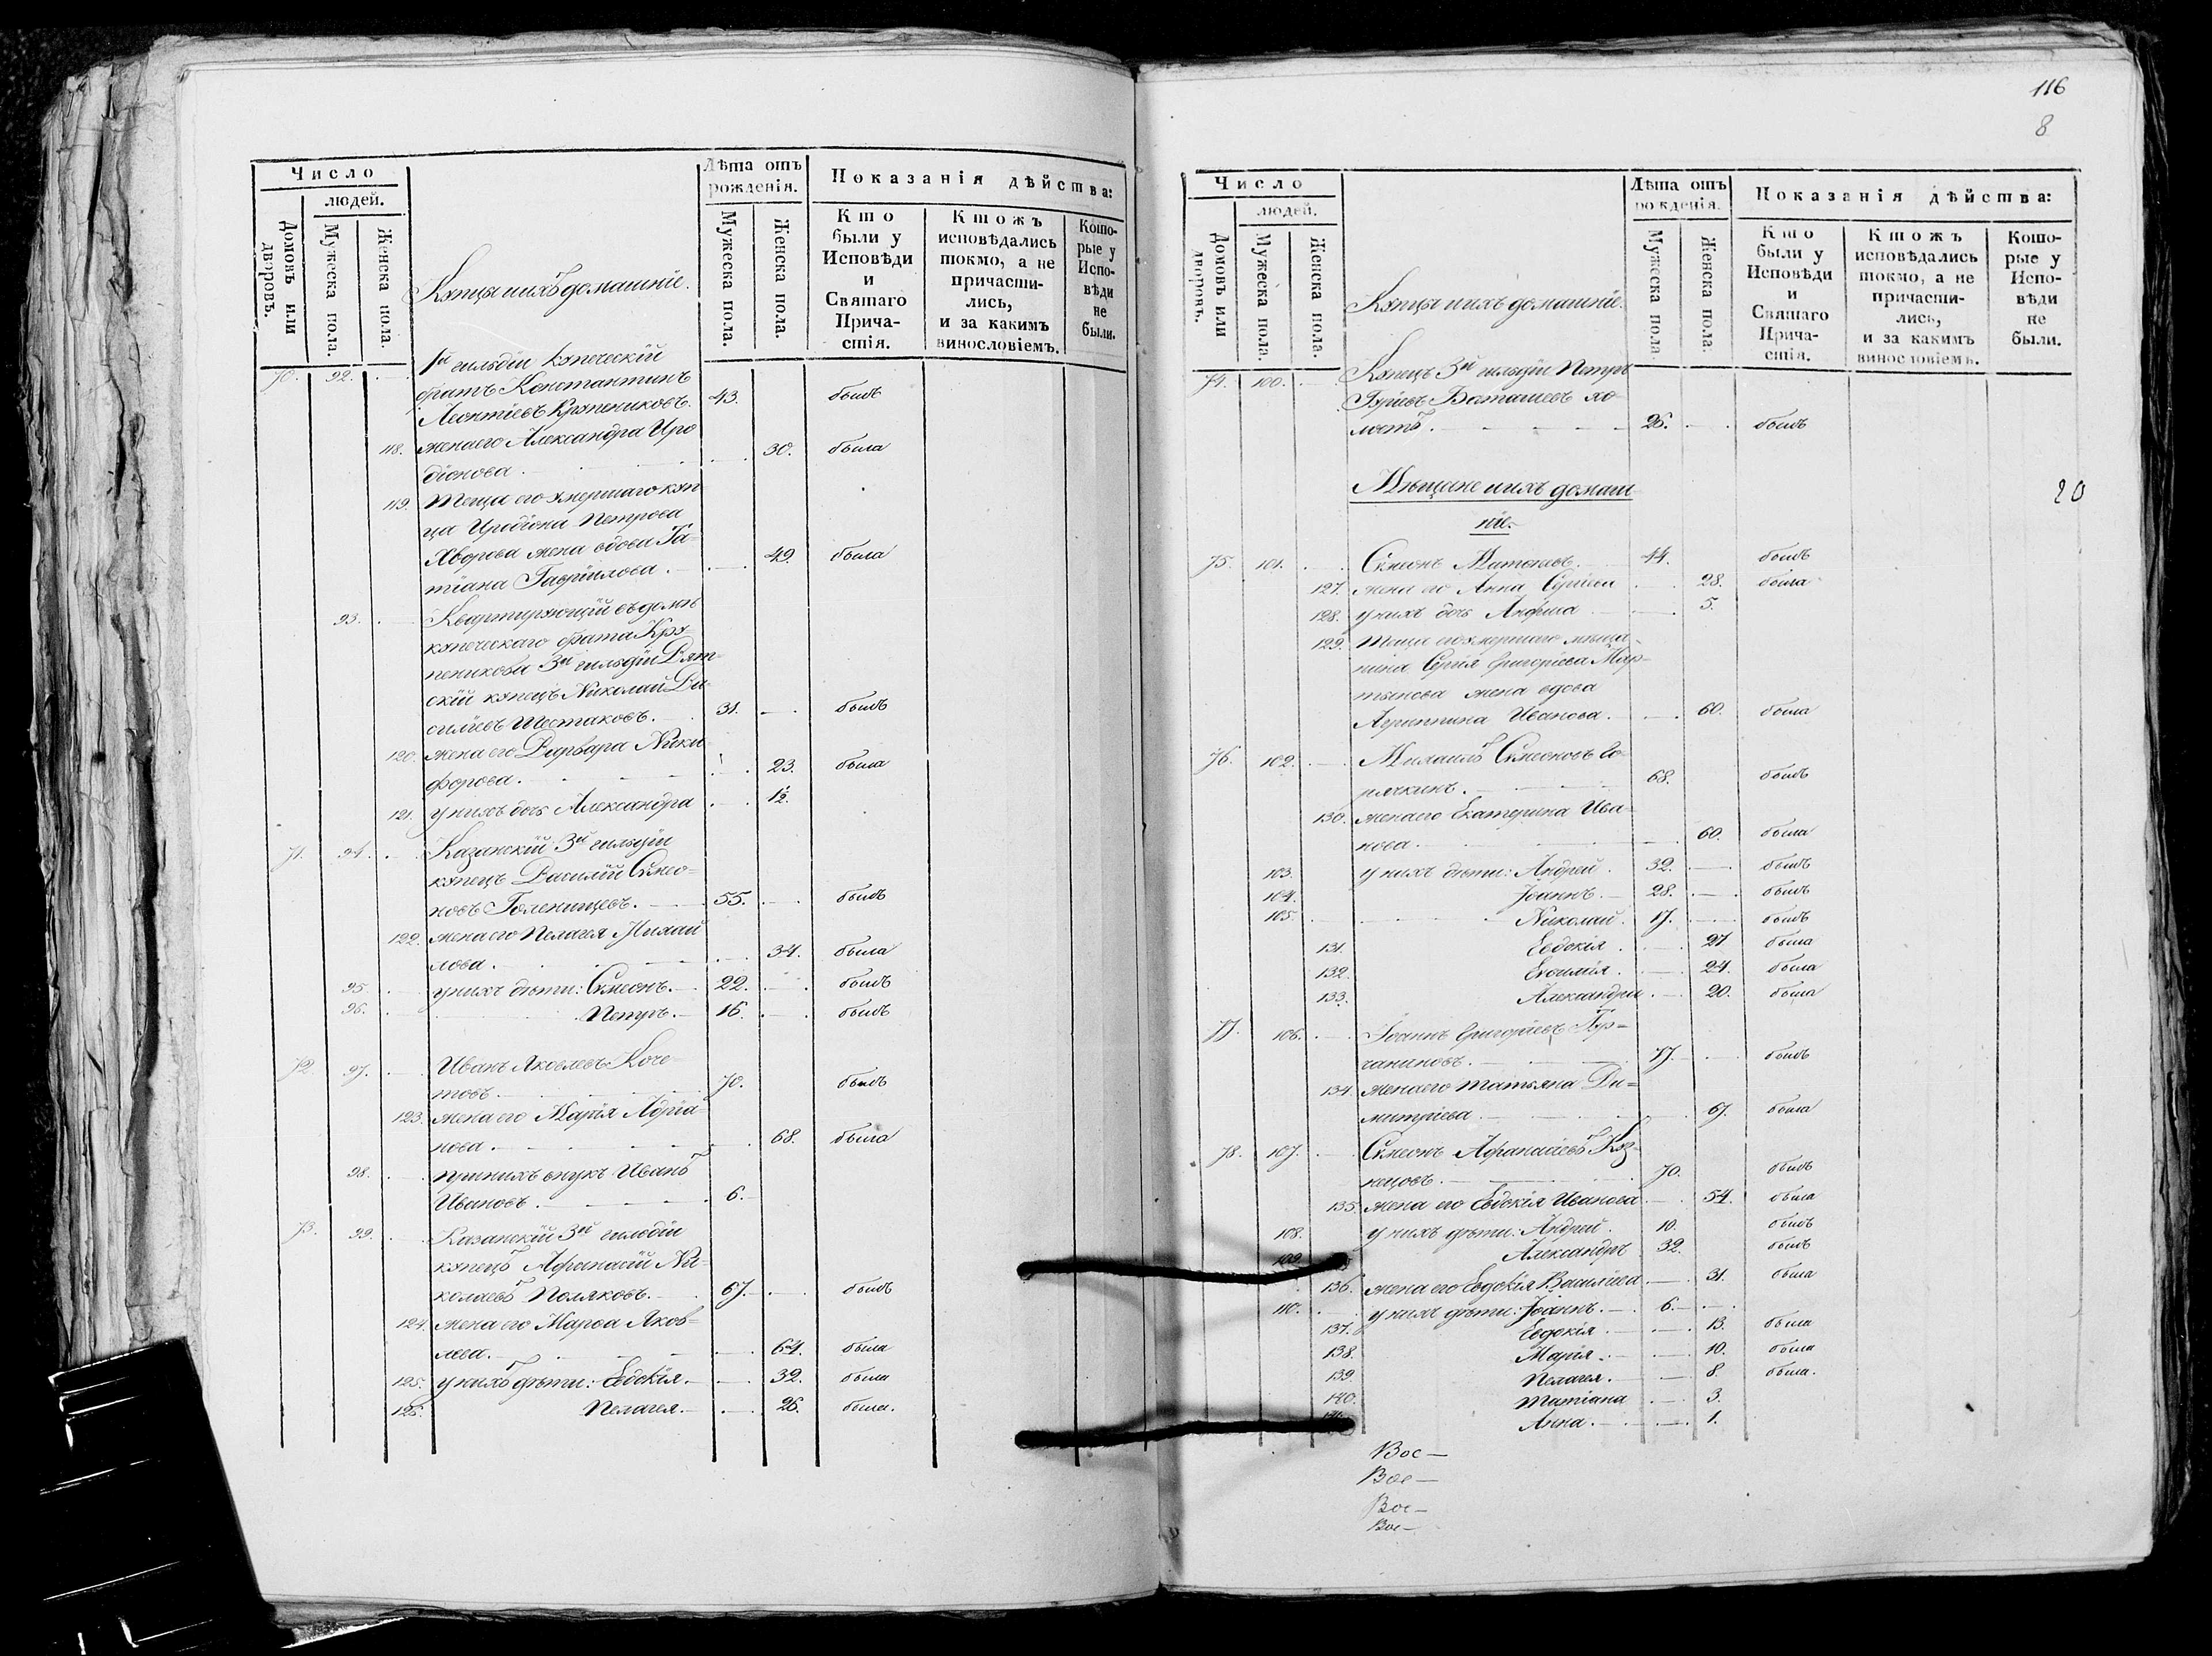 Число
людей.
Домовъ или дворовъ.
Мужеска пола.
Женска пола.
Купцы и ихъ домашніе.
Лѣта отъ рожденія.
Мужеска пола.
Женска пола.
Показанія дѣйства:
Кто были у Исповѣди и Святаго Причастія.
Ктожъ исповѣдались токмо, а не причастились, и за какимъ винословіемъ.
Которые у Исповѣди не были.
70. 92. 1й гильдіи купеческій
братъ Константинъ
Леонтіевъ Крупениковъ. 43. былъ
118. жена его Александра Иро
діонова. 30. была
119. Теща его умершаго куп
ца Иродіона Петрова
жена вдова Та-
тіана Гавріилова. 49. была
93. Квартирующій въ домѣ
купеческаго брата Кру
пеникова 3й гильдіи Вят-
скій купецъ Николай Ва
силіевъ Шестаковъ. 31. былъ
120. жена его Варвара Ники
форова. 23. была
121. у нихъ дочь Александра 1/2.
71. 94. Казанскій 3й гильдіи
купецъ Василій Сѵмео-
новъ Голенищевъ. 55. былъ
122. жена его Пелагея Михай
лова. 34. была
95. у нихъ дѣти: Сѵмеонъ. 22. былъ
96. Петръ. 16. былъ
72. 97. Иванъ Яковлевъ Коче-
товъ. 70. былъ
123. жена его Марія Адріа-
нова. 68. была
98. при нихъ внукъ Иванъ
Ивановъ. 6.
73. 99. Казанскій 3й гильдіи
купецъ Афанасій Ни-
колаевъ Поляковъ. 67. былъ
124. жена его Марѳа Яков-
лева. 64. была
125. у нихъ дѣти: Евдокія. 32. была
126. Пелагея. 26. была.
116
8
Число
людей.
Домовъ или дворовъ.
Мужеска пола.
Женска пола.
Купцы и ихъ домашніе.
Лѣта отъ рожденія.
Мужеска пола.
Женска пола.
Показанія дѣйства:
Кто были у Исповѣди и Святаго Причастія.
Ктожъ исповѣдались токмо, а не причастились, и за какимъ винословіемъ.
Которые у Исповѣди не были.
74. 100. Купецъ 3й гильдіи Петръ
Гуріевъ Боташевъ хо-
лостъ. 26. былъ
Мѣщане и ихъ домаш
ніе.
20
75. 101. Сѵмеонъ Матѳеевъ. 44. былъ
127. жена его Анна Сергіева 28. была
128. у нихъ дочь Анфиса 5.
129. Теща его умершаго мѣща-
нина Сергія Григоріева Мар-
тынова жена вдова
Агриппина Иванова. 60. была
76. 102. Михаилъ Сѵмеоновъ Го-
рячкинъ. 68. былъ
130. жена его Екатерина Ива-
нова. 60. была
103. у нихъ дѣти: Андрей. 32. былъ
104. Іоаннъ. 28. былъ
105. Николай. 17. былъ
131. Евдокія. 27. была
132. Евѳимія. 24. была
133. Александра. 20. была
77. 106. Іоаннъ Григоріевъ Тур-
чаниновъ. 77. былъ
134. жена его Татьяна Ди-
митріева. 67. была
78. 107. Сѵмеонъ Афанасіевъ Куз-
нецовъ. 70. былъ
135. жена его Евдокія Иванова. 54. была
108. у нихъ дѣти: Андрей. 10. былъ
109. Александръ 32. былъ
136. жена его Евдокія Василіева 31. была
110. у нихъ дѣти: Іоаннъ. 6.
137. Евдокія. 13. была
138. Марія. 10. была
139. Пелагея. 8. была.
140. Татіана 3.
Анна. 1.
Вос—
Вос—
Вос—
Вос—